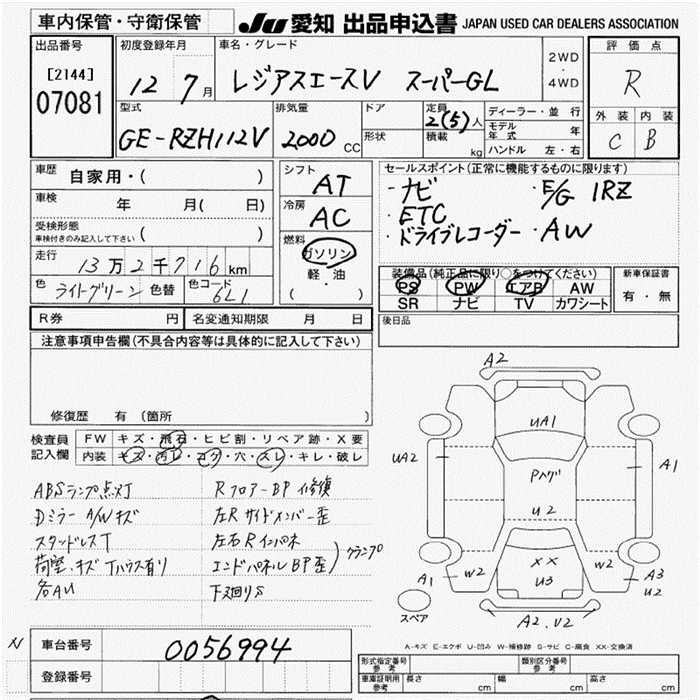 車内保管・守衛保管
JU 愛知 出品申込書 JAPAN USED CAR DEALERS ASSOCIATION
出品番号
[2144]
07081
初度登録年月
12 7月
車名・グレード
レジアスエースV スーパーGL
2WD
・
4WD
評価点
R
外装 内装
C B
型式
GE-RZH112V
排気量
2000 CC
ドア
形状
定員
2(5)人
積載
kg
ディーラー・並行
モデル年式 年
ハンドル 左・右
車歴
自家用・( )
車検
年 月( 日)
受検形態
車検付きのみ記入して下さい ( )
走行
13万2千716km
色
ライトグリーン
色替
色コード
6L1
シフト
AT
冷房
AC
燃料
ガソリン
軽・油
( )
セールスポイント(正常に機能するものに限ります)
・ナビ ・E/G 1RZ
・ETC
・ドライブレコーダー ・AW
装備品(純正品に限り○をつけてください)
PS PW エアB AW
SR ナビ TV カワシート
新車保証書
有・無
後日品
R券 円
名変通知期限 月 日
注意事項申告欄(不具合内容等は具体的に記入して下さい)
修復歴 有(箇所
検査員
記入欄
FW キズ・飛石・ヒビ割・リペア跡・X要
内装 キズ・汚レ・コゲ・穴・スレ・キレ・破レ
ABSランプ点灯
Dミラー A/Wキズ
スタッドレスT
荷室・キズ Tハウス有り
各AU
RフロアーBP修復
左Rサイドメンバー歪
左右Rインパネ
エンドパネルBP歪
クランプ口
下廻りS
A2
UA1
UA2
A1
Pハゲ
U2
XX
U3
W2
W2
A1
A3
U2
A2.U2
スペア
A-キズ E-エクボ U-凹み W-補修跡 S-サビ C-腐食 XX-交換済
N
車台番号
0056994
登録番号
形式指定番号
参考
類別区分番号
参考
車庫証明用
参考
長さ cm
幅 cm
高さ cm